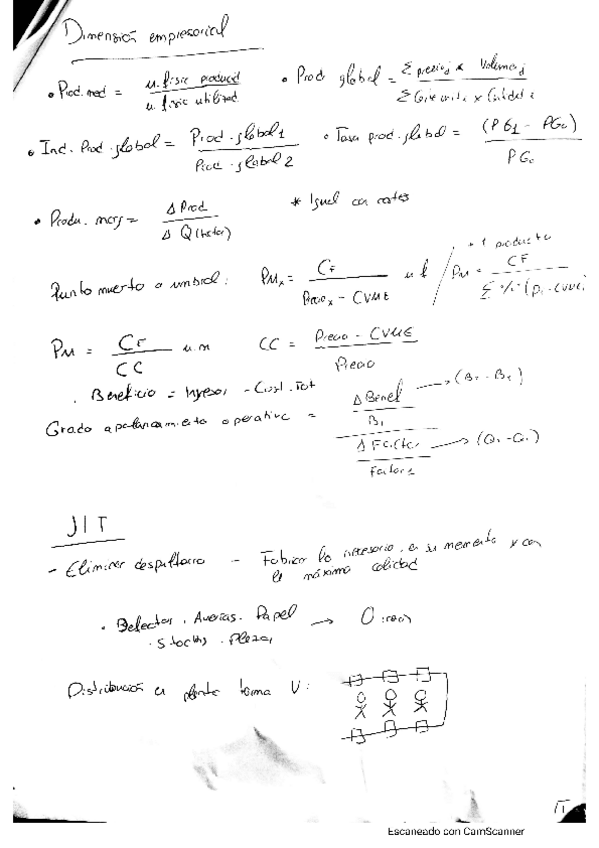 Dimensión empresarial
• Prod. med = u. fisic produced / u. fisic utilized
• Prod global = Σ precio j x Volumen j / Σ
• Ind. Prod. global = Prod. global 1 / Prod. global 2
• Tasa prod. global = (PG1 - PG0) / PG0
• Produ. marg = Δ Prod / Δ Q (factor)
* Igual con costes
Punto muerto o umbral: PMx = CF / Preciox - CVME u f / PM = CF / Σ % (pi - cvmei)
+ 1 producto
PM = CF / CC u.m
CC = Precio - CVME / Precio
. Beneficio = Ingresos - Cost. Tot
Grado apalancamiento operativo = Δ Benef / B1 / Δ Factor / Factor 1
→ (B2 - B1)
→ (Q2 - Q1)
JIT
- Eliminar despilfarro - Fabricar lo necesario, en su momento y con
la máxima calidad
• Defectos. Averías. Papel → O ceros
. Stocks. Plazos
Distribución en planta forma U:
Escaneado con CamScanner